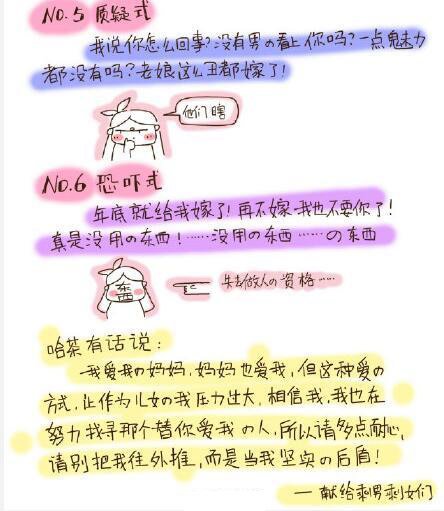 NO.5 质疑式
我说你怎么回事?没有男の看上你吗?一点魅力
都没有吗?老娘这么丑都嫁了!
他们瞎
NO.6 恐吓式
年底就给我嫁了!再不嫁我也不要你了!
真是没用の东西!……没用の东西……の东西
东西
失去做人の资格…
哈茶有话说:
我爱我の妈妈,妈妈也爱我,但这种爱の
方式,让作为儿女の我压力过大,相信我,我也在
努力找寻那个替你爱我の人,所以请多点耐心,
请别把我往外推,而是当我坚实の后盾!
—献给剩男剩女们